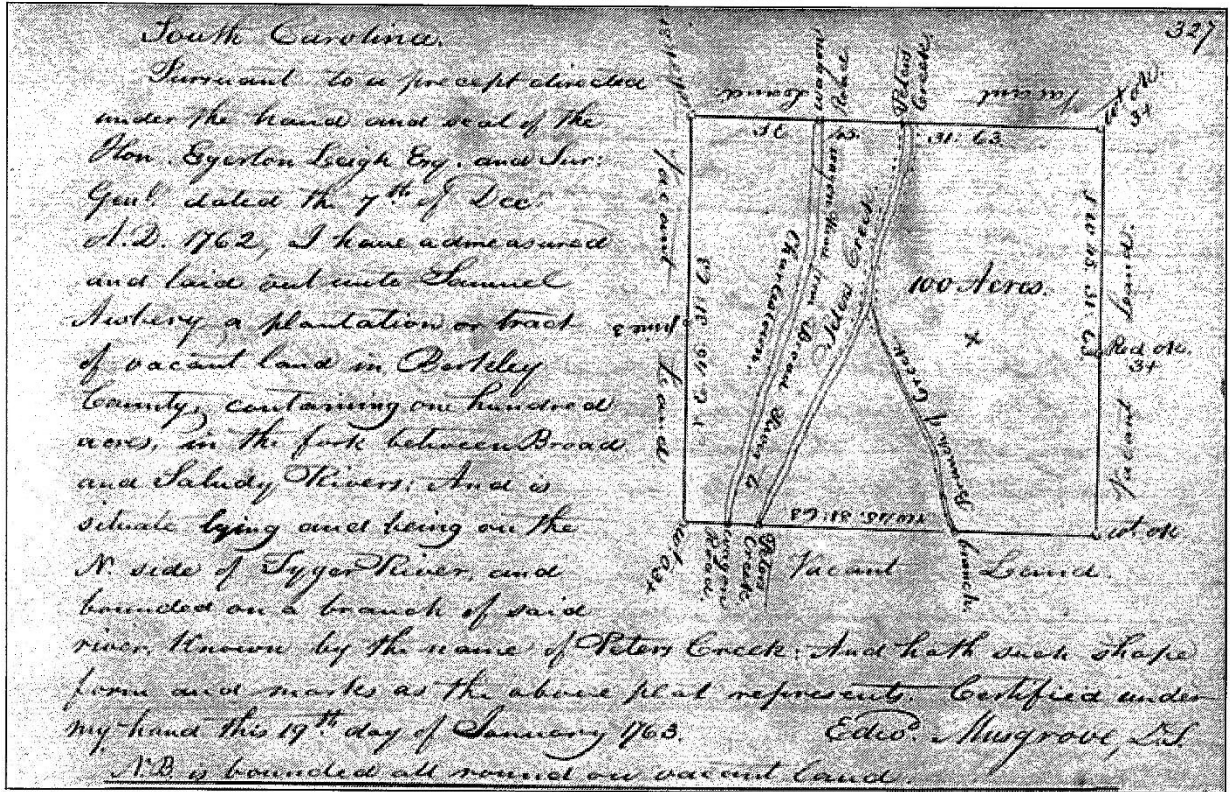 327
South Carolina.
Pursuant to a precept directed
under the hand and seal of the
Hon. Egerton Leigh Esq. and Sur:
Genl. dated the 7th of Dec:
A.D. 1762, I have admeasured
and laid out unto Samuel
Awbery, a plantation or tract
of vacant land in Berkley
County, containing one hundred
acres, in the fork between Broad
and Saludy Rivers: And is
situate lying and being on the
N. side of Tyger River, and
bounded on a branch of said
river, Known by the name of Peters Creek: And hath such shape
form and marks as the above plat represents Certified under
my hand this 19th day of January 1763. Edwd. Musgrove, D.S.
N.B. is bounded all round on vacant land.
Vacant
Land
Road
Peters
Creek
31: 63
Vacant Land
Charlestown.
waggon Road from Broad River to
Peters Creek.
Branch of Creek.
100 Acres.
Red ok.
3+
Vacant Land
wt ok
Waggon
Road.
Peters
Creek.
branch.
Vacant Land.